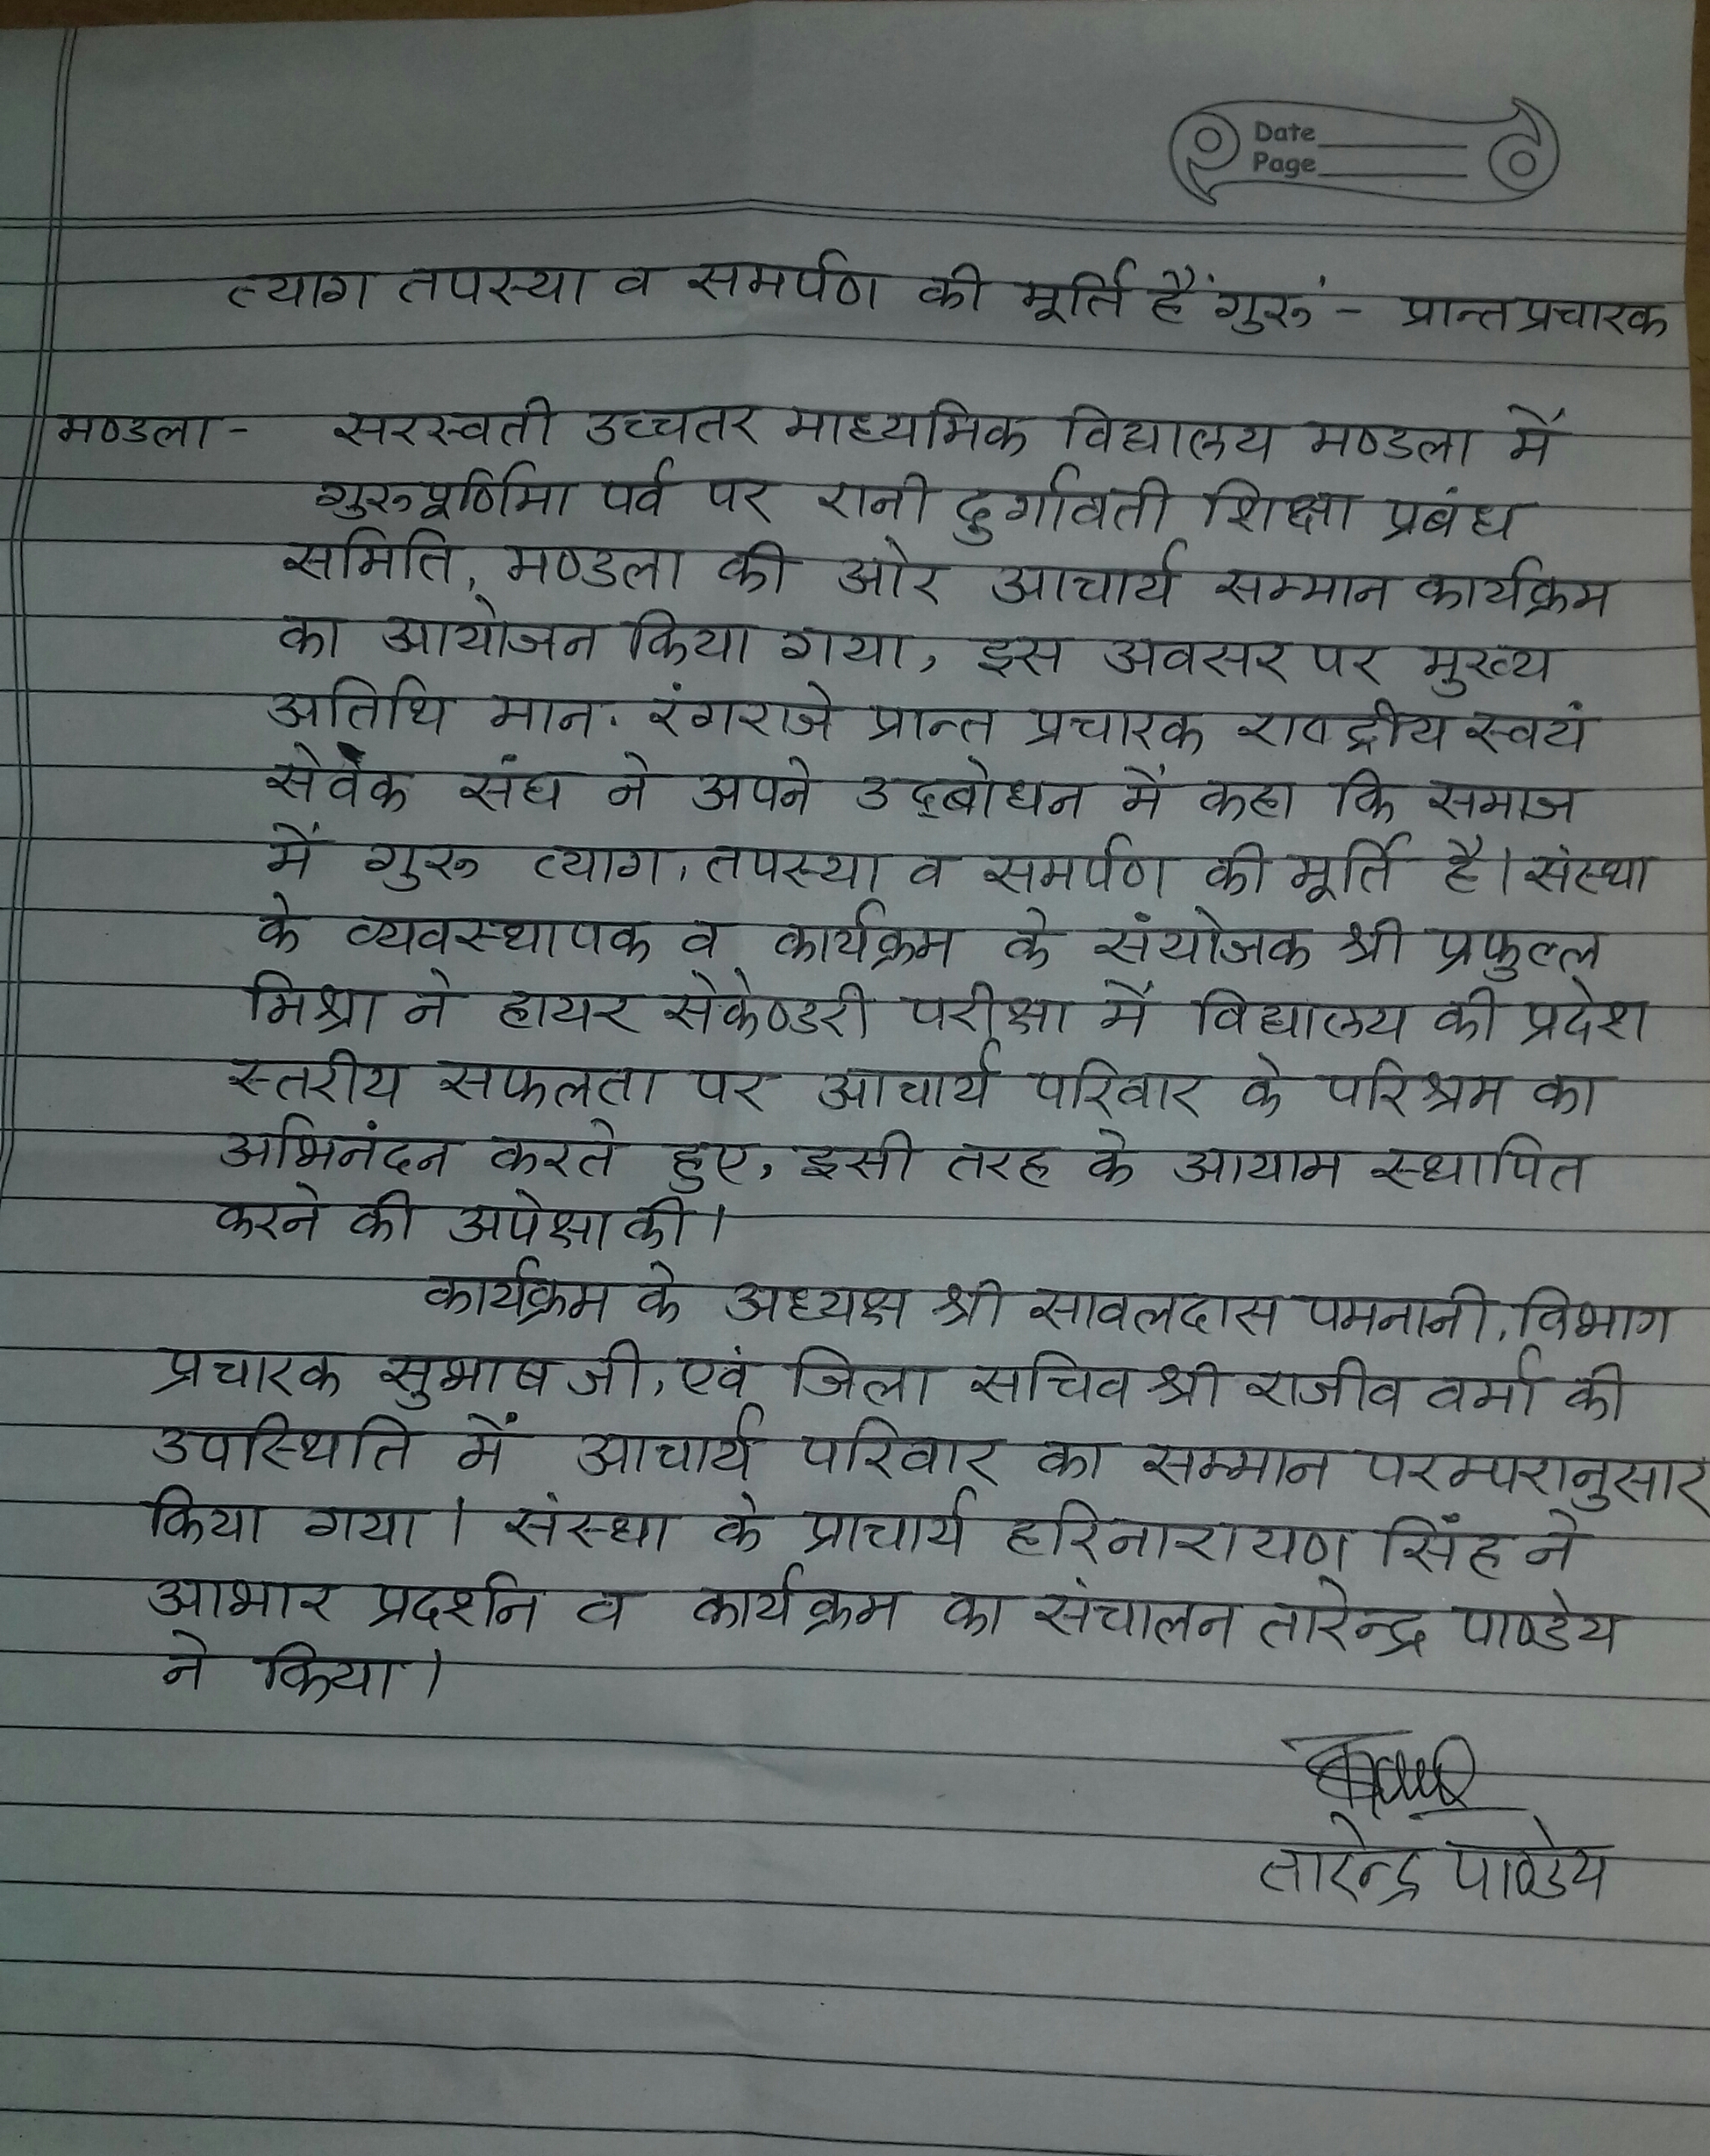 Date
Page
त्याग तपस्या व समर्पण की मूर्ति हैं 'गुरु' - प्रान्त प्रचारक
मण्डला - सरस्वती उच्चतर माध्यमिक विद्यालय मण्डला में
गुरुपूर्णिमा पर्व पर रानी दुर्गावती शिक्षा प्रबंध
समिति, मण्डला की ओर आचार्य सम्मान कार्यक्रम
का आयोजन किया गया, इस अवसर पर मुख्य
अतिथि मान. रंगराजे प्रान्त प्रचारक राष्ट्रीय स्वयं
सेवक संघ ने अपने उद्‌बोधन में कहा कि समाज
में गुरु त्याग, तपस्या व समर्पण की मूर्ति है। संस्था
के व्यवस्थापक व कार्यक्रम के संयोजक श्री प्रफुल्ल
मिश्रा ने हायर सेकेण्डरी परीक्षा में विद्यालय की प्रदेश
स्तरीय सफलता पर आचार्य परिवार के परिश्रम का
अभिनंदन करते हुए, इसी तरह के आयाम स्थापित
करने की अपेक्षा की।
कार्यक्रम के अध्यक्ष श्री सावलदास पमनानी, विभाग
प्रचारक सुभाष जी, एवं जिला सचिव श्री राजीव वर्मा की
उपस्थिति में आचार्य परिवार का सम्मान परम्परानुसार
किया गया। संस्था के प्राचार्य हरिनारायण सिंह ने
आभार प्रदर्शन व कार्यक्रम का संचालन तारेन्द्र पाण्डेय
ने किया।
तारेन्द्र पाण्डेय